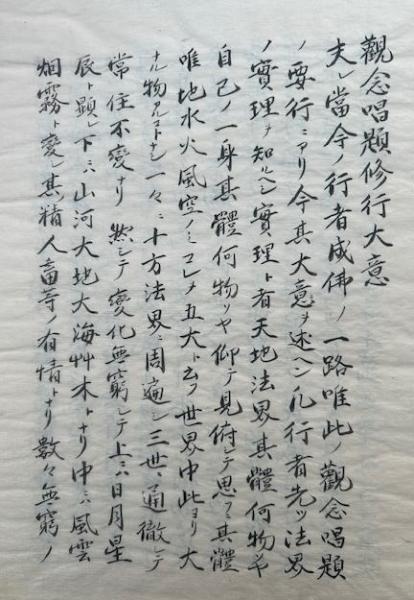 觀念唱題修行大意
夫レ當今ノ行者成佛ノ一路唯此ノ觀念唱題
ノ要行ニアリ今其大意ヲ述ヘン凡行者先ツ法界
ノ實理ヲ知ルヘシ實理ト者天地法界其體何物ソヤ
自己ノ一身其體何物ソヤ仰テ見俯シテ思フ其體
唯地水火風空ノミコレヲ五大ト云フ世界中此ヨリ大
ナル物アルコトナシ一々ニ十方法界ニ周遍シ三世ニ通徹シテ
常住不變ナリ 然シテ變化無窮シテ上ニハ日月星
辰ト顕レ下ニハ山河大地大海艸木トナリ中ニハ風雲
烟霧ト變シ其精人畜等ノ有情トナリ數々無窮ノ